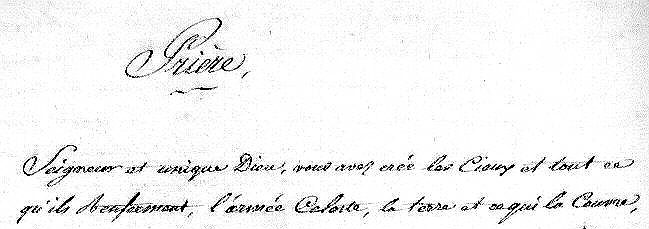 Prière,
Seigneur et unique Dieu, vous avez créé les Cieux et tout ce
qu'ils Renferment, l'armée Céleste, la terre et ce qui la Couvre,